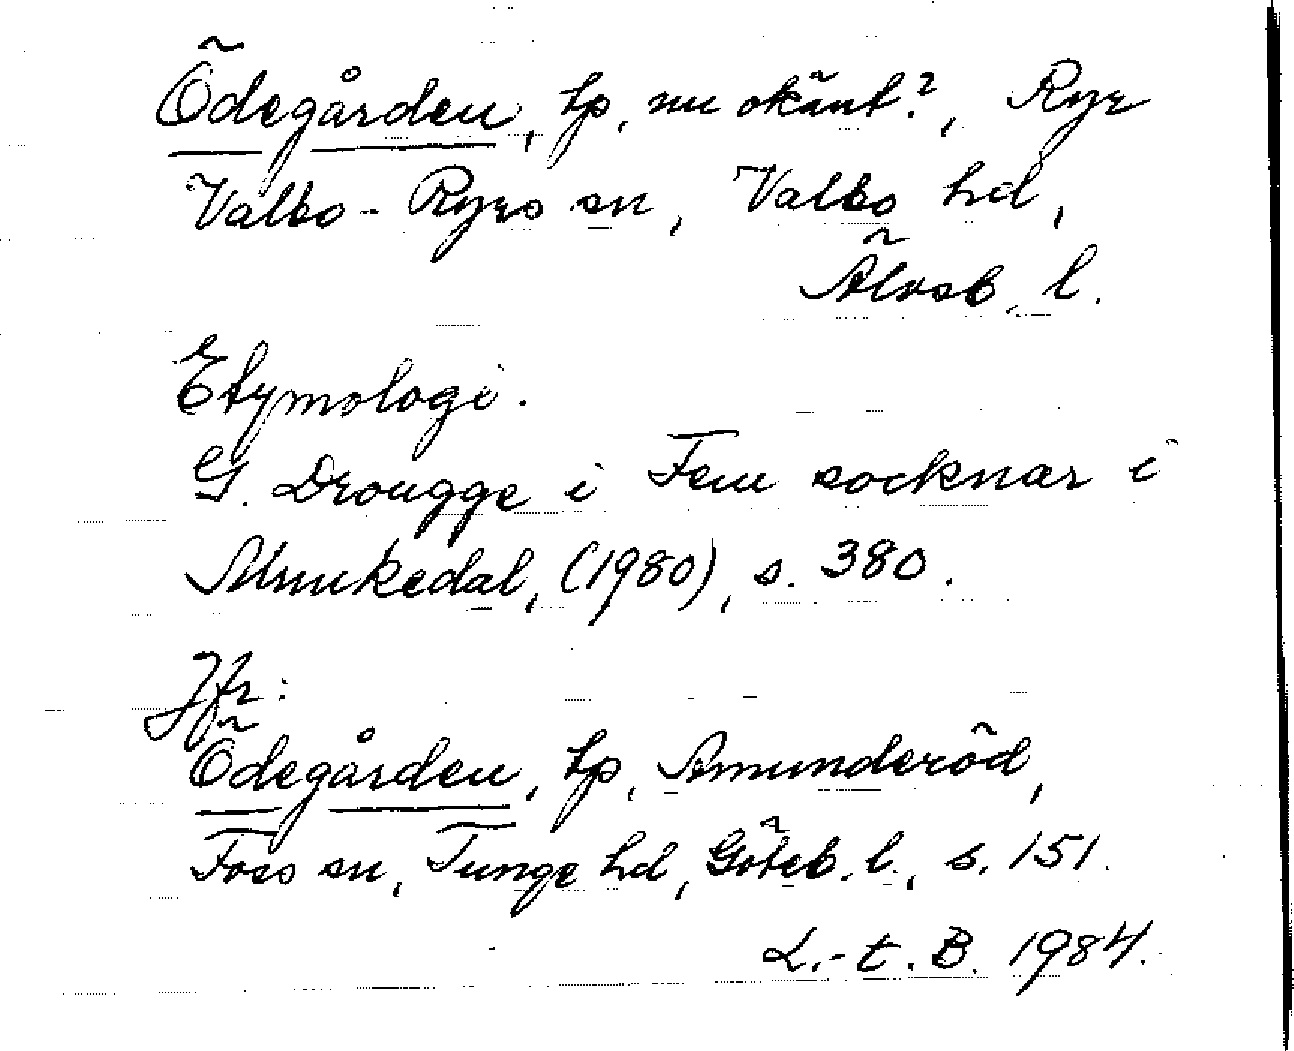 Ödegården, tp, nu okänt?, Ryr
Valbo-Ryrs sn, Valbo hd,
Älvsb. l.
Etymologi.
G. Drougge i Fem socknar i
Munkedal, (1980), s. 380.
Jfr:
Ödegården, tp, Amunderöd,
Foss sn, Tunge hd, Göteb. l., s. 151.
L.-t. B. 1984.